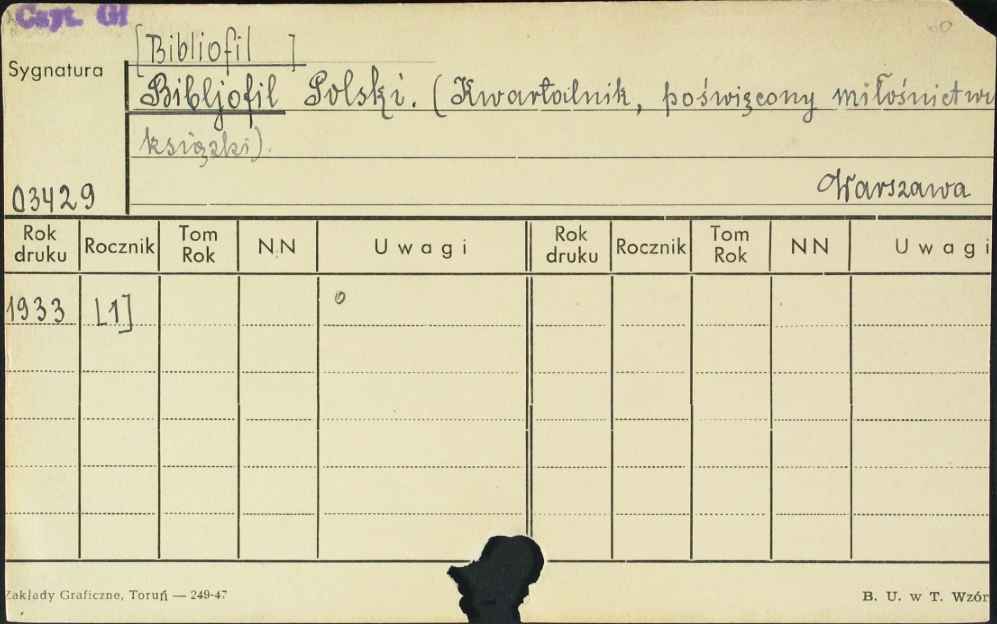 Czyt. Gł
[Bibliofil ]
Sygnatura
Bibljofil Polski. (Kwartalnik, poświęcony miłośnictwu
książki).
03429
Warszawa
Rok druku Rocznik Tom Rok NN Uwagi Rok druku Rocznik Tom Rok NN Uwagi
1933 [1] o
Zakłady Graficzne, Toruń — 249-47 B. U. w T. Wzór